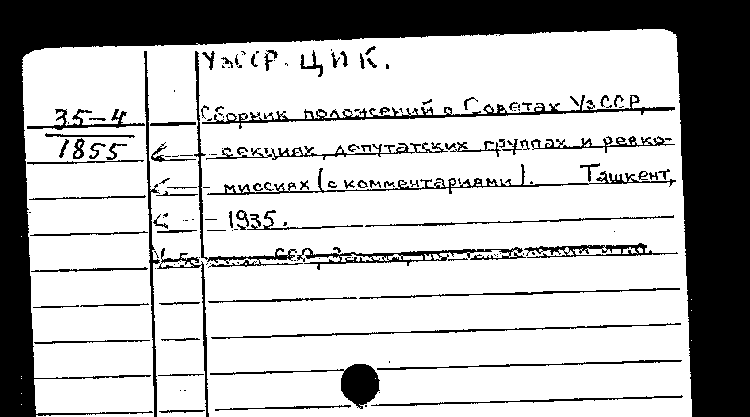 УзССР. ЦИК.
35-4
1855
Сборник положений о Советах УзССР,
секциях, депутатских группах и ревко-
миссиях (с комментариями). Ташкент,
1935.
ССР, Законы,